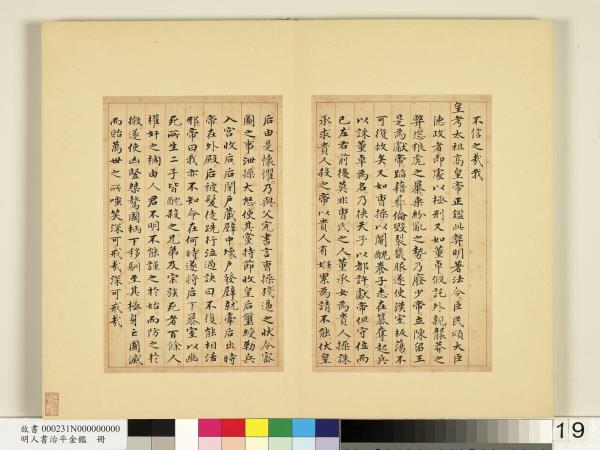 不信之哉戒
皇考太祖高皇帝正鑑此弊明著法令臣民頌大臣
德政者即處以極刑又如董卓假託外親藉莽之
弊恣狼虎之暴乘紛亂之勢乃廢少帝立陳留王
是為獻帝蹈藉彝倫毀裂畿服遂使漢室板蕩不
可復救矣又如曹操以閹醜養子志在篡奪起兵
以誅董卓為名乃挾天子以都許獻帝但守位而
已左右前後莫非曹氏之人董承女為貴人操誅
承求貴人殺之帝以貴人有姙累為請不能伏皇
后由是懷懼乃與父完書言曹操殘逼之狀令密
圖之事泄操大怒使其黨持節收皇后璽綬勒兵
入宮收后后閉戶藏壁中壞戶發壁就牽后出時
帝在外殿后被髮徒跣行泣過訣曰不復能相活
邪帝曰我亦不知命在何時遂將后下暴室以幽
死所生二子皆酖殺之兄弟及宗族死者百餘人
權奸之禍由人君不明不能謹之於始而防之於
微遂使凶豎桀驁國柄下移馴至其極身亡國滅
而貽萬世之所嗤笑深可戒哉深可戒哉
故書 000231N000000000
明人書治平金鑑 冊
19